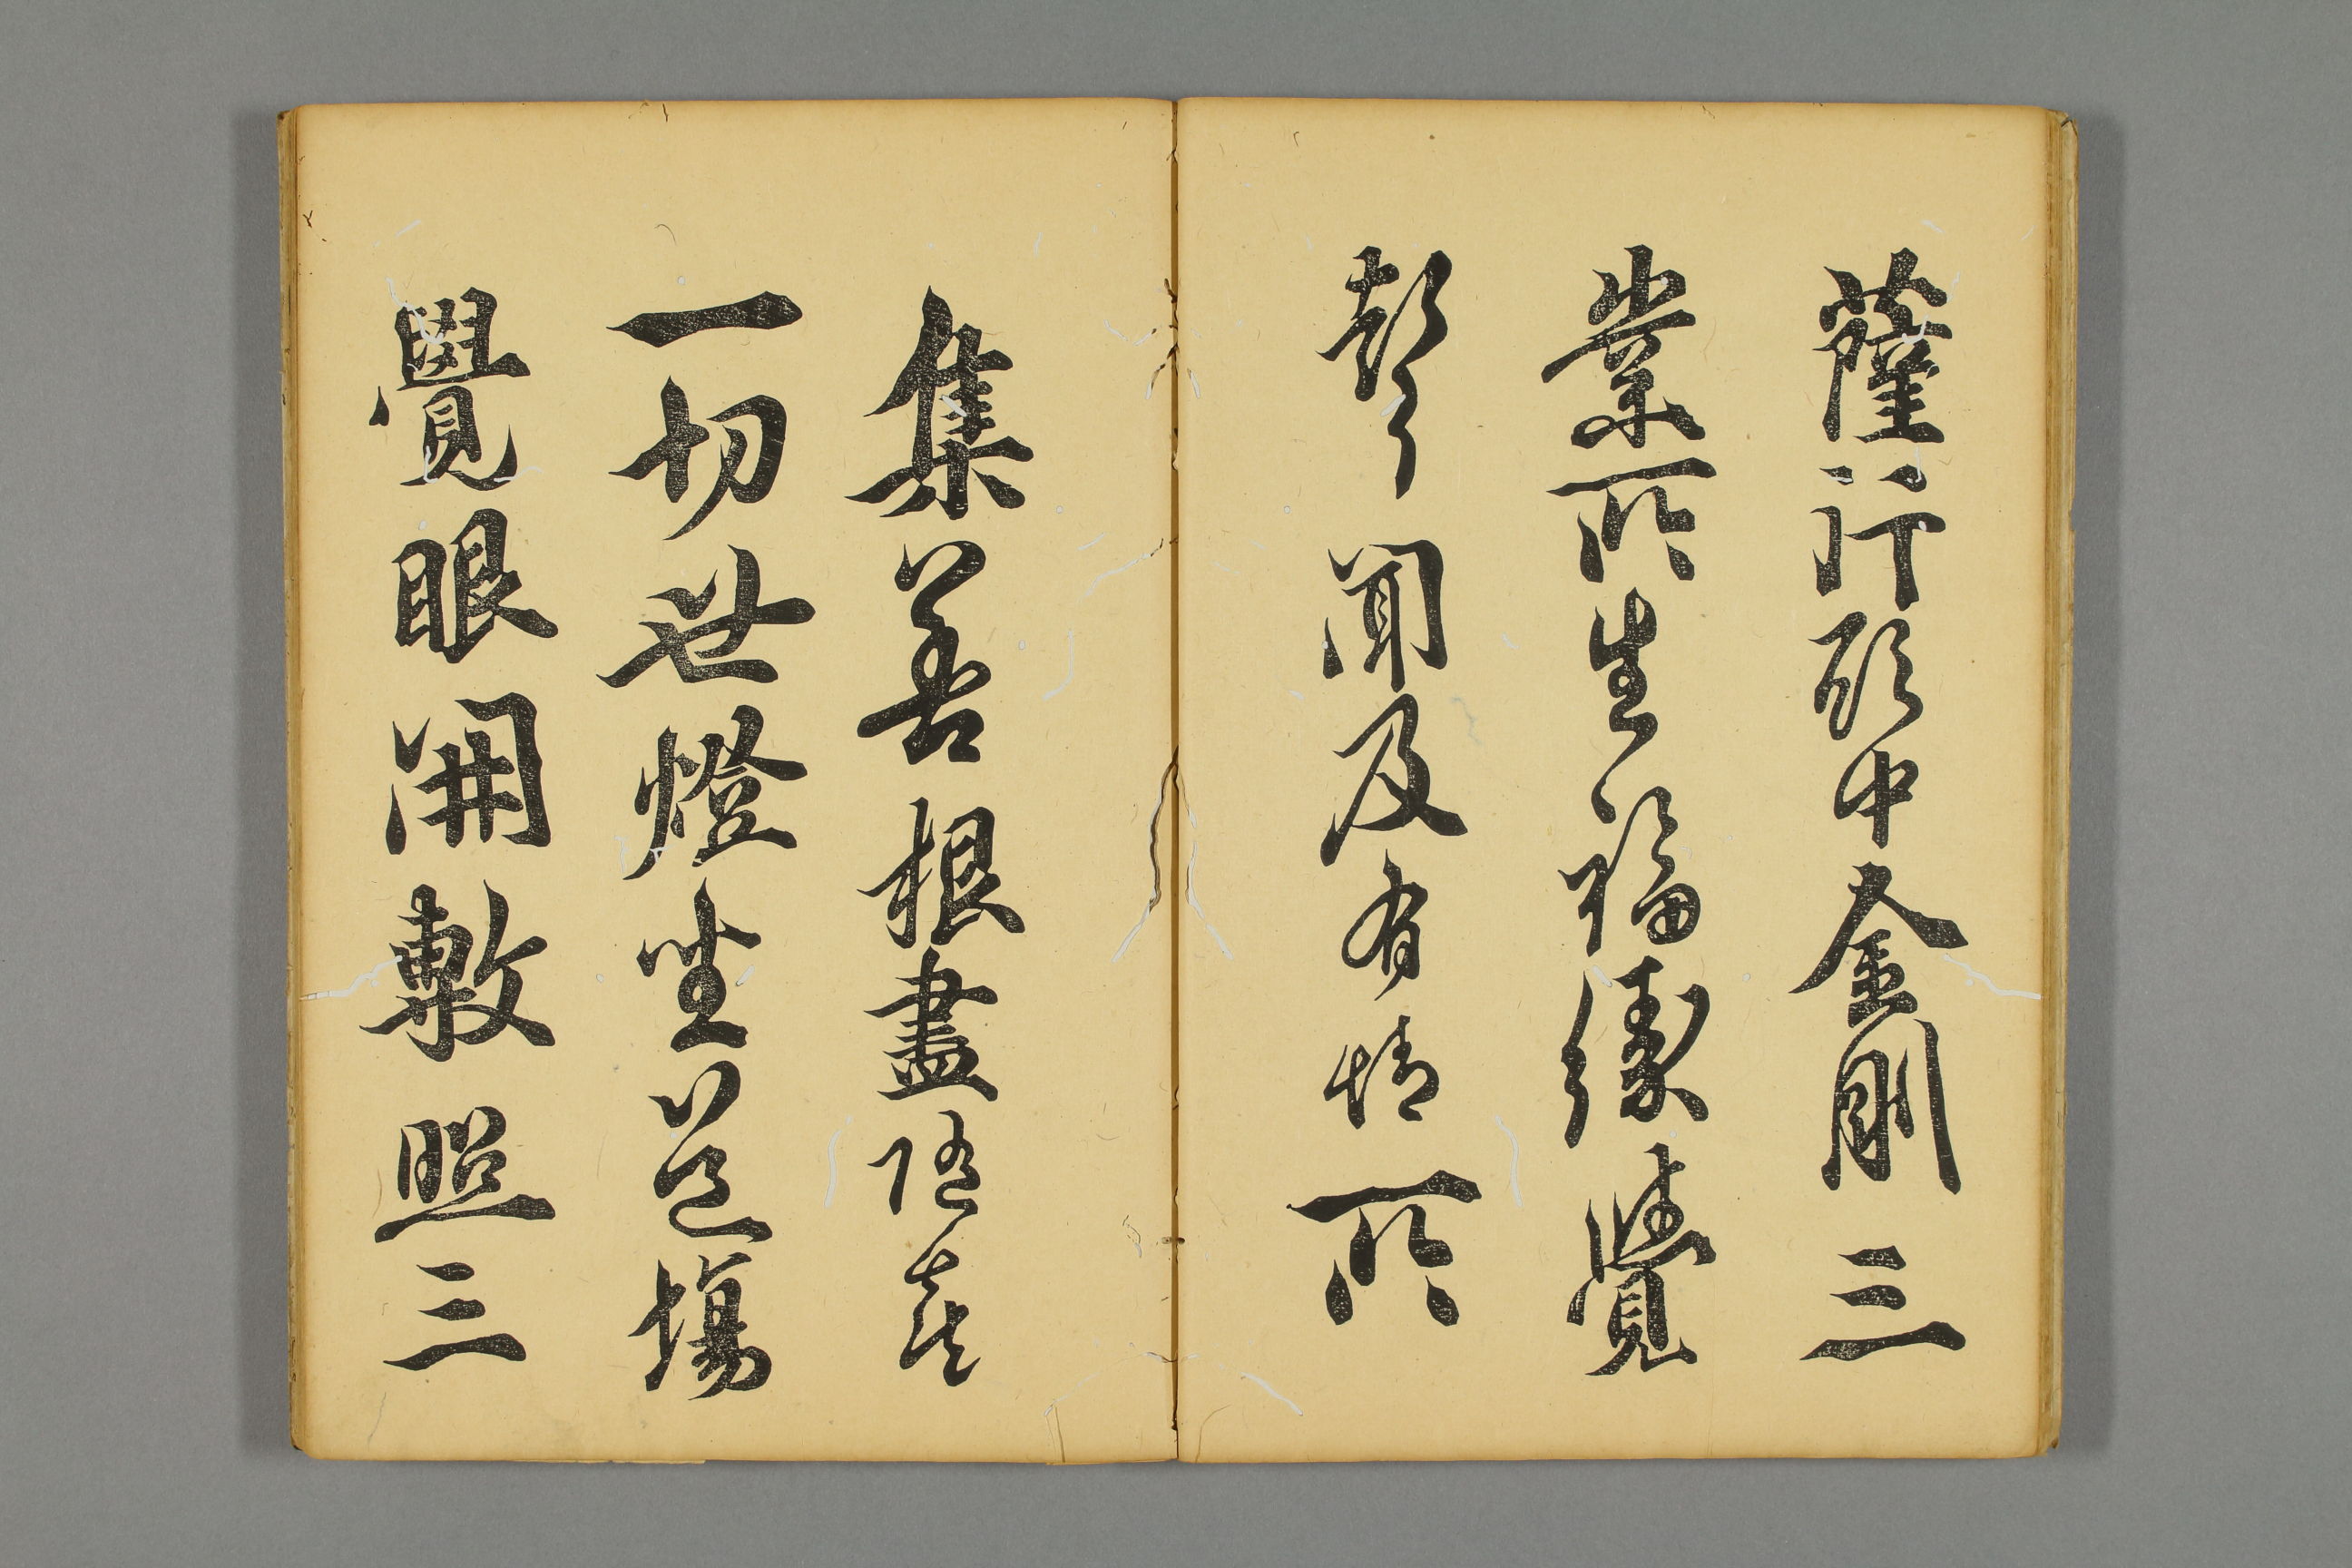 薩行願中金剛三
業所生福縁覺
聲聞及有情所
集善根盡隨喜
一切世燈坐道場
覺眼開敷照三